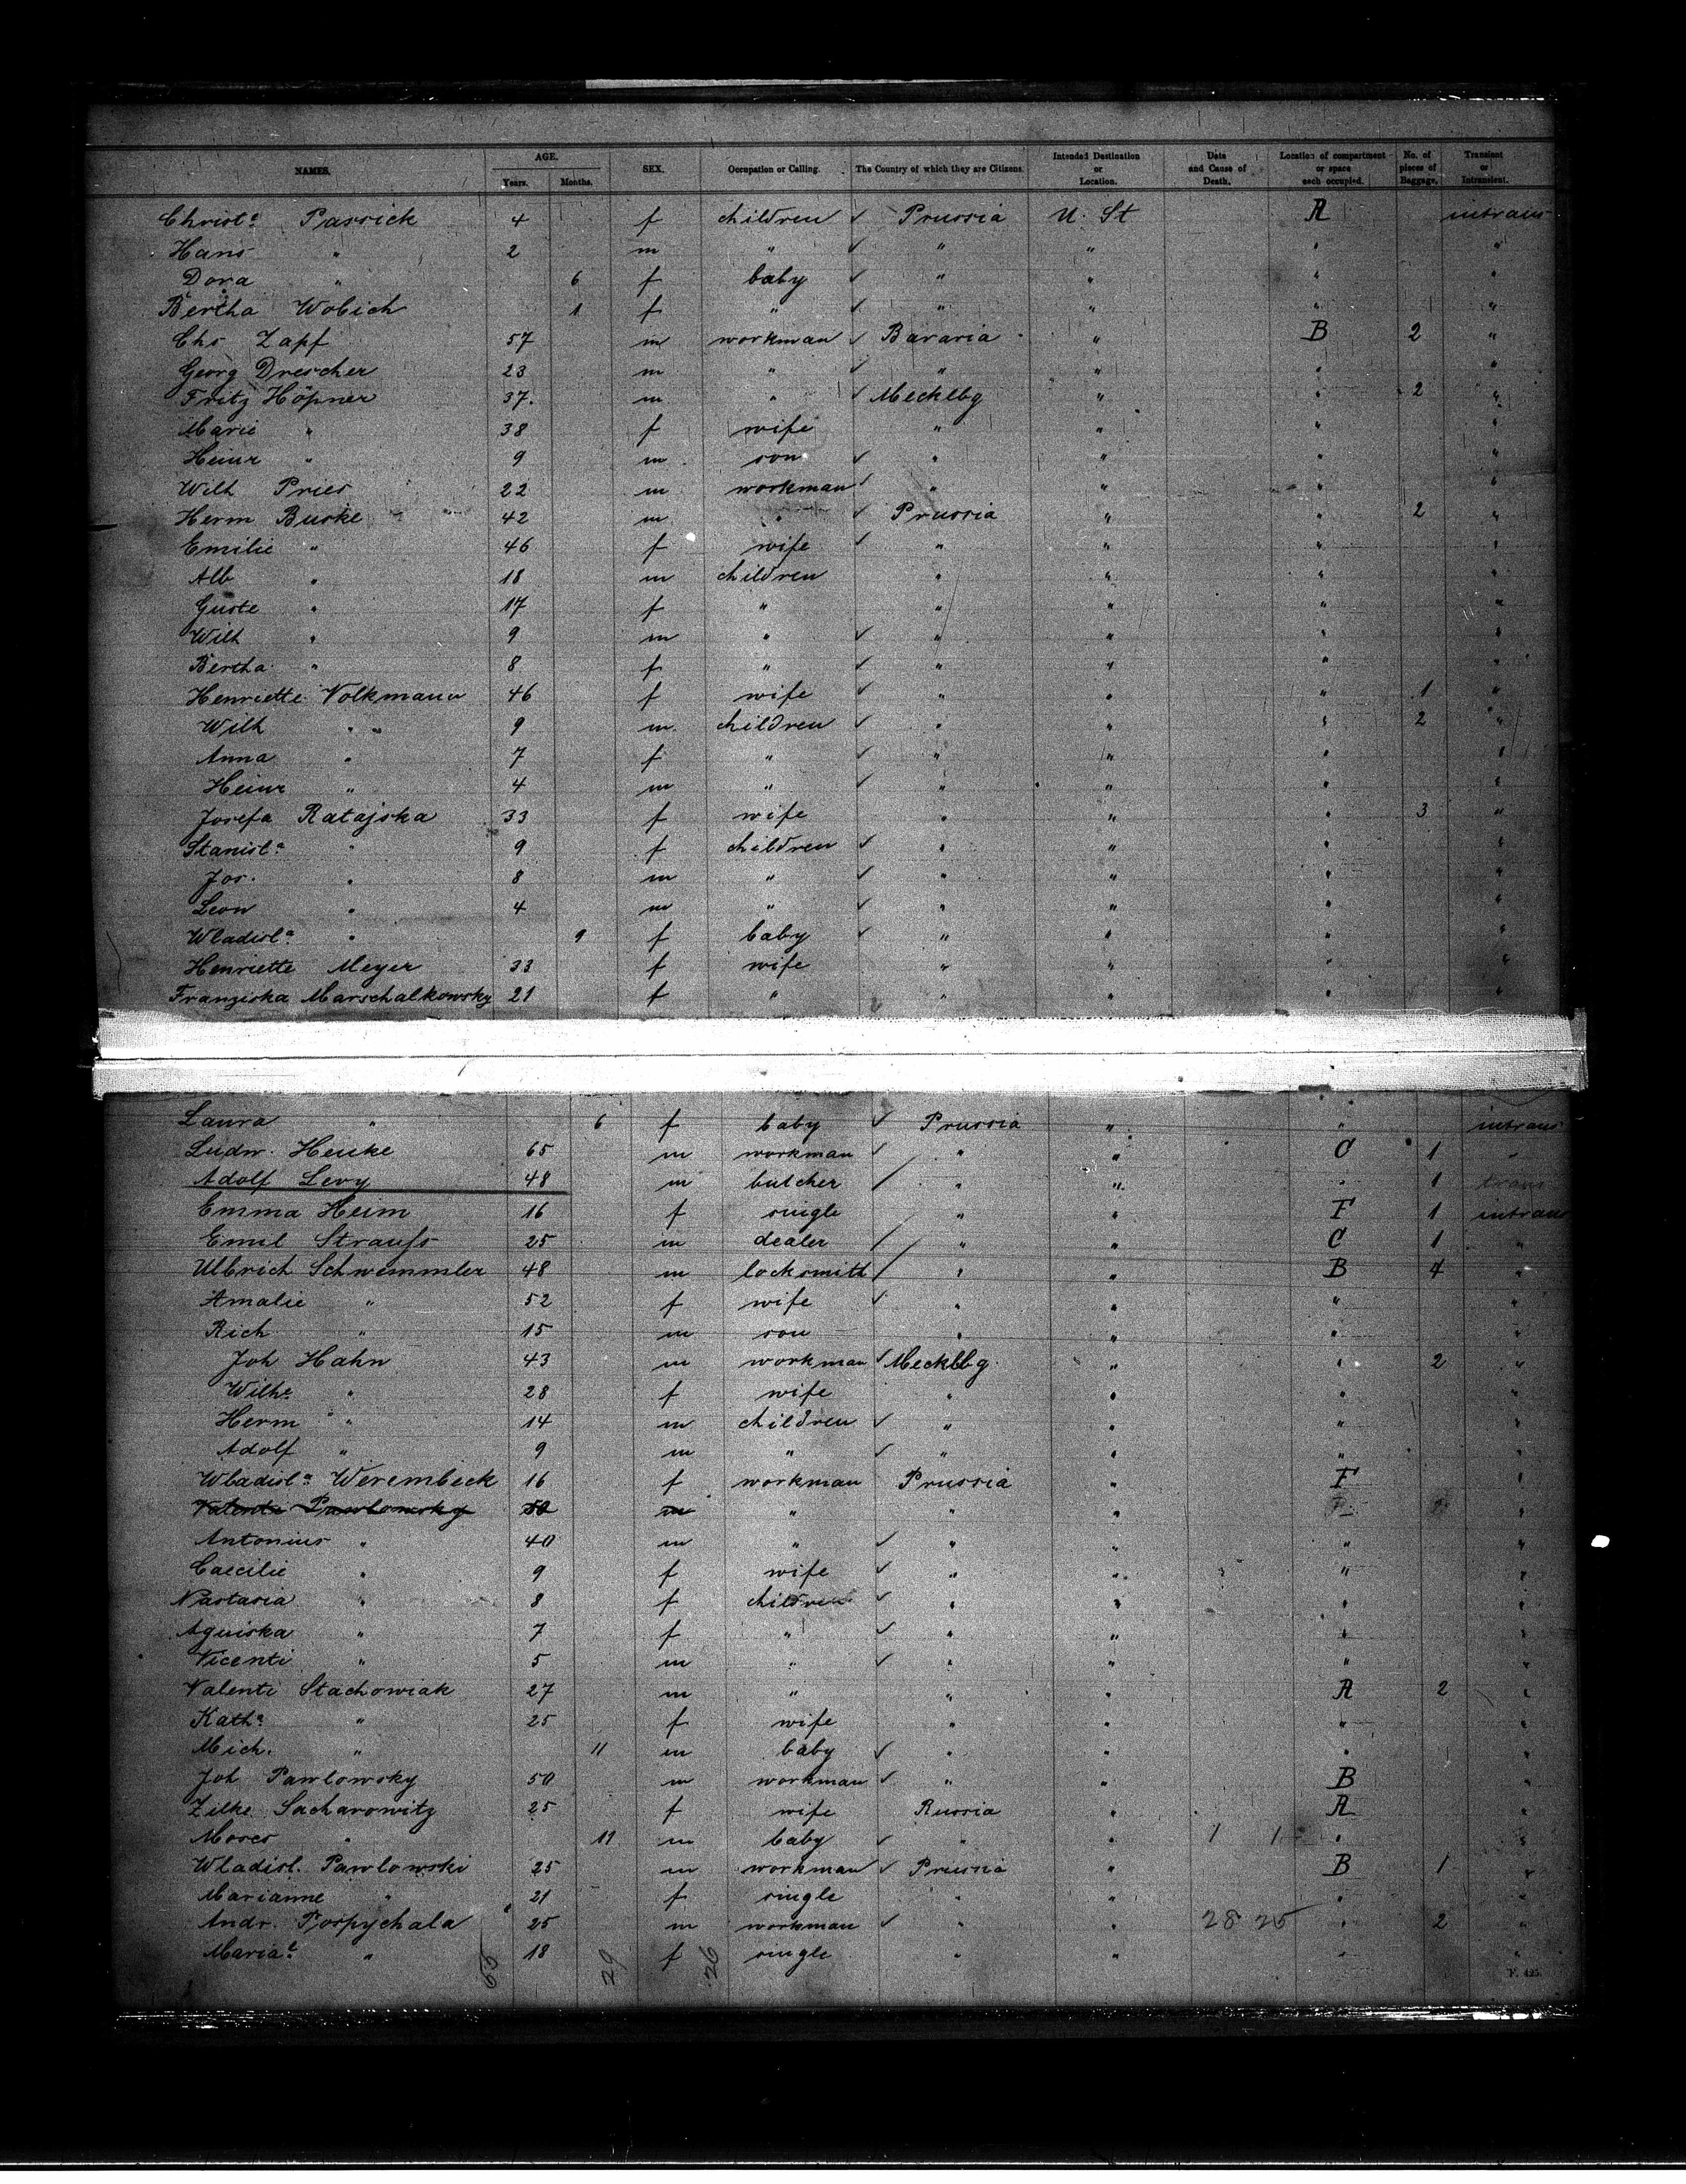 NAMES. AGE. Years. Months. SEX. Occupation or Calling. The Country of which they are Citizens. Intended Destination or Location. Date and Cause of Death. Location of compartment or space each occupied. No. of pieces of Baggage. Transient or Intransient.
Christa Passick 4 f children ✓ Prussia U. St A intrans
Hans " 2 m " ✓ " " " "
Dora " 6 f baby ✓ " " " "
Bertha Wobich 1 f " ✓ " " " "
Chr Zapf 57 m workman ✓ Bavaria " B 2 "
Georg Drescher 23 m " ✓ " " " "
Fritz Höpner 37. m " ✓ Mecklbg " " 2 "
Marie " 38 f wife " " " "
Heinr " 9 m son ✓ " " " "
Wilh Pries 22 m workman ✓ " " " "
Herm Buske 42 m " ✓ Prussia " " 2 "
Emilie " 46 f wife ✓ " " " "
Alb " 18 m children " " " "
Guste " 17 f " " " " "
Wilh " 9 m " ✓ " " " "
Bertha " 8 f " ✓ " " " "
Henriette Volkmann 46 f wife ✓ " " " 1 "
Wilh " " 9 m children ✓ " " " 2 "
Anna " 7 f " ✓ " " " "
Heinr " 4 m " ✓ " " " "
Josefa Ratajska 33 f wife " " " 3 "
Stanisla " 9 f children ✓ " " " "
Jos. " 8 m " ✓ " " " "
Leon " 4 m " ✓ " " " "
Wladisla " 9 f baby ✓ " " " "
Henriette Meyer 33 f wife " " " "
Franziska Marschalkowsky 21 f " " " " "
Laura " 6 f baby ✓ Prussia " " intrans
Ludw. Henke 65 m workman ✓ " " C 1 "
Adolf Levy 48 m butcher / " " " 1 trans
Emma Heim 16 f single " " F 1 intrans
Emil Strauss 25 m dealer / " " C 1 "
Ulbrich Schwemmler 48 m locksmith / " " B 4 "
Amalie " 52 f wife ✓ " " " "
Rich " 15 m son " " " "
Joh Hahn 43 m workman ✓ Mecklbg. " " 2 "
Wilhe " 28 f wife " " " "
Herm " 14 m children ✓ " " " "
Adolf " 9 m " ✓ " " " "
Wladisla Werembeck 16 f workman Prussia " F "
Valenti Pawlowsky 50 m " " " "
Antonius " 40 m " ✓ " " " "
Caecilie " 9 f wife ✓ " " " "
Nastasia " 8 f children ✓ " " " "
Agniska " 7 f " ✓ " " " "
Vicenti " 5 m " ✓ " " " "
Valenti Stachowiak 27 m " " " A 2 "
Katha " 25 f wife " " " "
Mich. " 11 m baby ✓ " " " "
Joh Pawlowsky 50 m workman ✓ " " B "
Zilke Sacharowitz 25 f wife Russia " A "
Moses " 11 m baby ✓ " " 1 1 " "
Wladisl. Pawlowski 25 m workman ✓ Prussia " B 1 "
Marianne " 21 f single " " " "
Andr. Pospychala 25 m workman ✓ " " 28 25 " 2 "
Maria " 18 f single " " " "
55 29 26
F. 425.